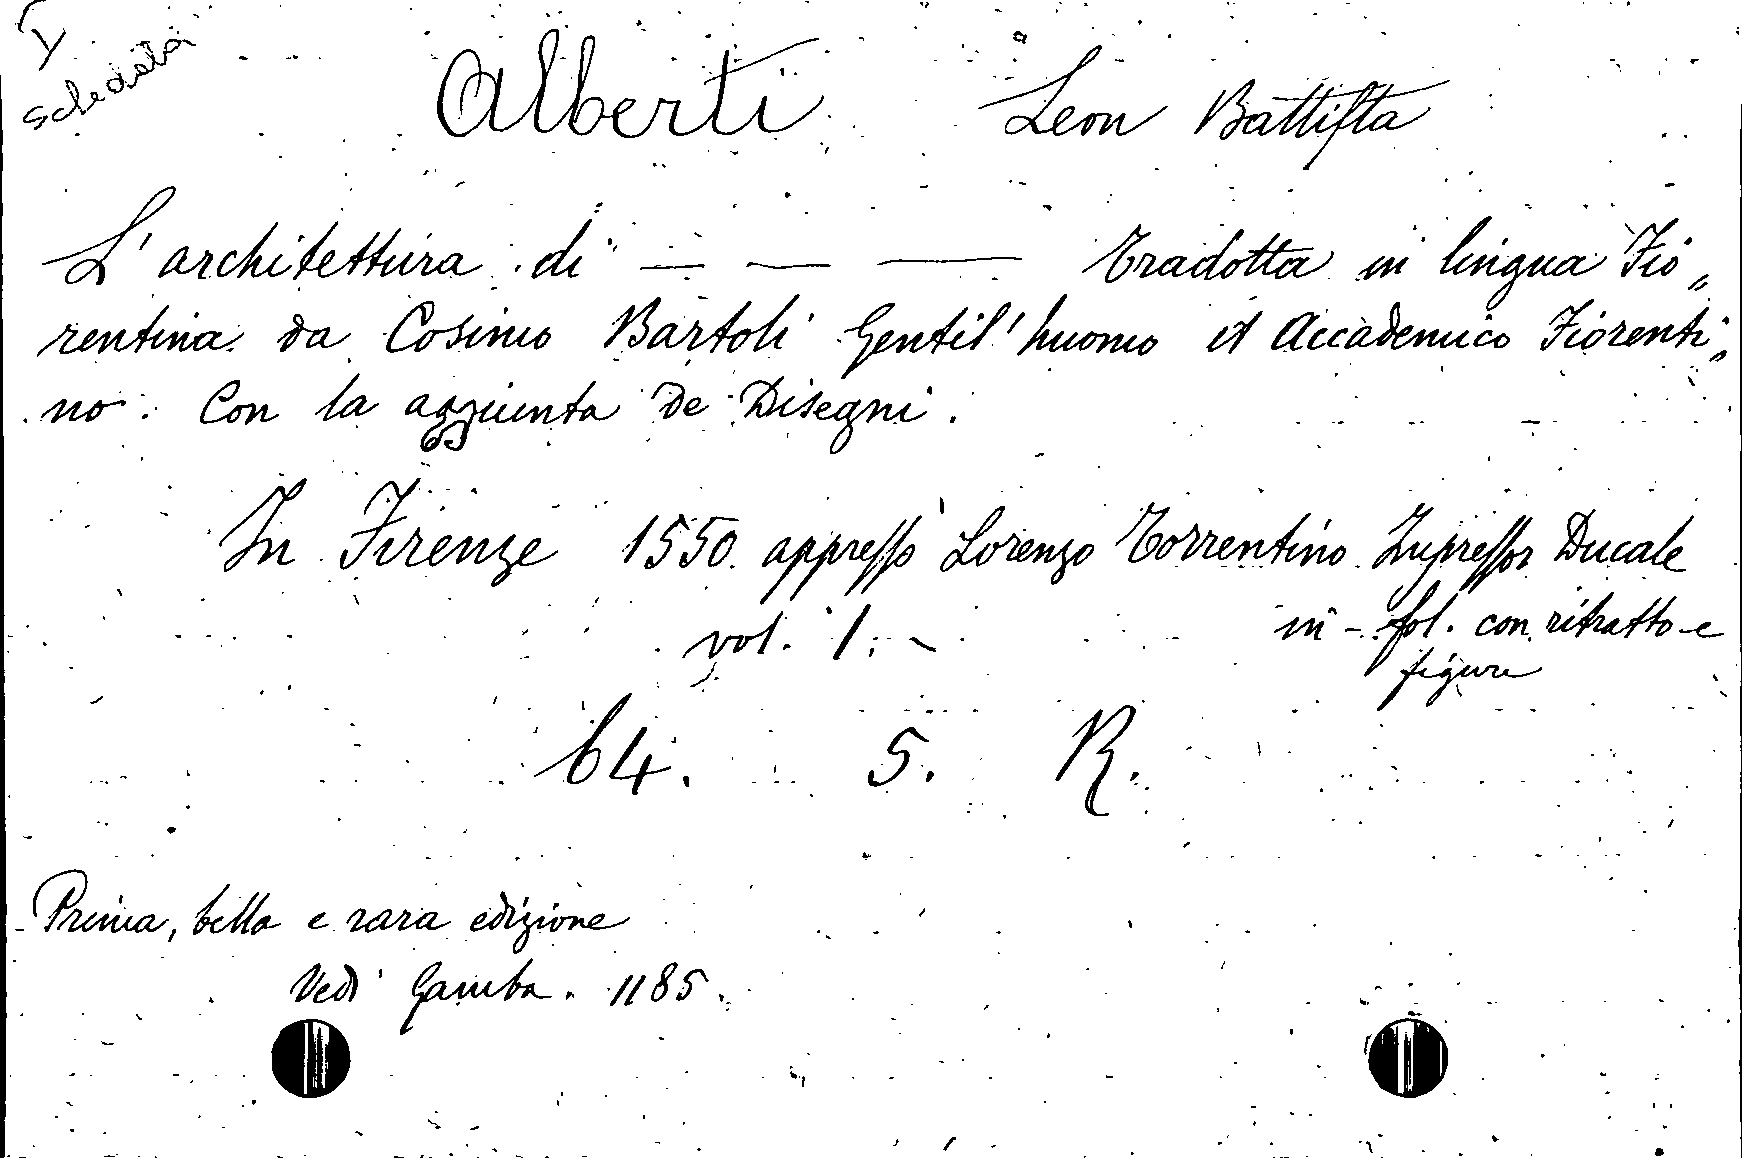 Y
schedata
Alberti Leon Battista
L'architettura di — — — Tradotta in lingua Fio„
rentina da Cosimo Bartoli Gentil'huomo et Accademico Fiorenti„
no. Con la aggiunta de Disegni.
In Firenze 1550. appresso Lorenzo Torrentino Impressor Ducale
vol. 1. - in - fol. con ritratto e
figure
64. 5. R.
Prima, bella e rara edizione
Vedi Gamba. 1185.